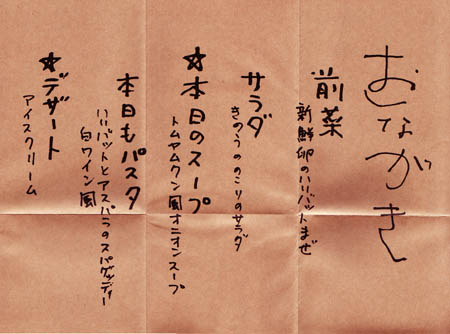 おしながき
前菜
新鮮卵のハリバットまぜ
サラダ
きのうののこりのサラダ
☆本日のスープ
トムヤムクン風オニオンスープ
本日もパスタ
ハリバットとアスパラのスパゲッティー
白ワイン風
★デザート
アイスクリーム